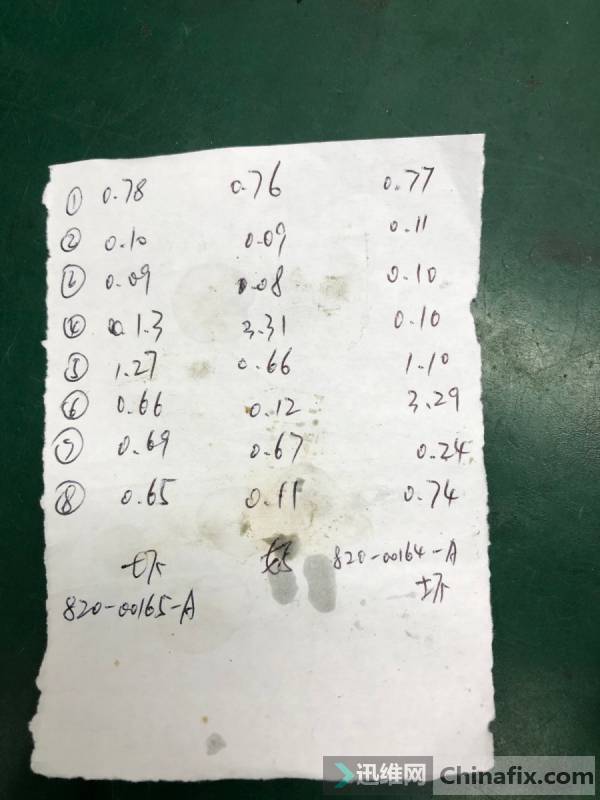 ① 0.78 0.76 0.77
② 0.10 0.09 0.11
③ 0.09 0.08 0.10
④ 0.13 3.31 0.10
⑤ 1.27 0.66 1.10
⑥ 0.66 0.12 3.29
⑦ 0.69 0.67 0.24
⑧ 0.65 0.11 0.74
坏 好 820-00164-A
820-00165-A 坏
迅维网 Chinafix.com